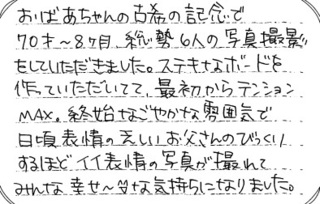 おばあちゃんの古希の記念で
70才～8ヶ月、総勢6人の写真撮影
をしていただきました。ステキなボードを
作っていただいてて、最初からテンション
MAX。終始なごやかな雰囲気で
日頃表情の乏しいお父さんのびっくり
するほどイイ表情の写真が撮れて
みんな幸せ～な気持ちになりました。